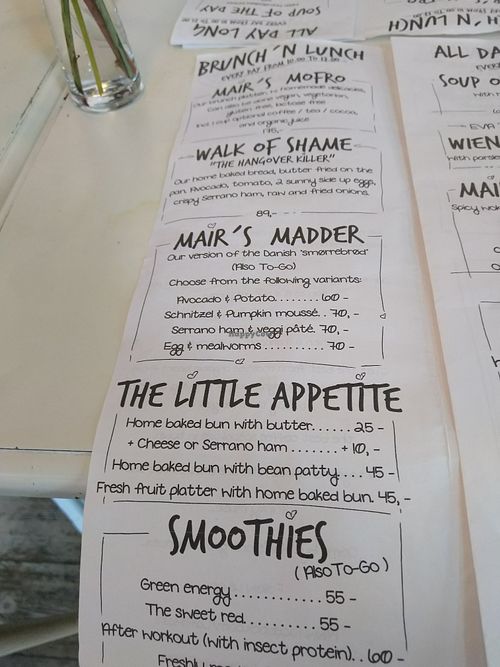 SOUP OF THE DAY
ALL DAY LONG
BRUNCH 'N LUNCH
EVERY DAY FROM 10.00 TO
MAIR'S MOFRO
Our brunch platter, 12 homemade delicacies,
Can also be done vegan, vegetarian,
gluten free, lactose free
Incl. 1 cup optional coffee / tea / cocoa,
and organic juice
175,-
WALK OF SHAME
"THE HANGOVER KILLER"
Our home baked bread, butter fried on the
pan. Avocado, tomato, 2 sunny side up eggs,
crispy Serrano ham, raw and fried onions.
89,-
MAIR'S MADDER
Our version of the Danish 'smørrebrød'
(Also To-Go)
Choose from the following variants:
Avocado & Potato........ 60 -
Schnitzel & Pumpkin moussé.. 70, -
Serrano ham & veggi pâté. 70, -
Egg & mealworms .......... 70 -
happycow
THE LITTLE APPETITE
Home baked bun with butter...... 25 -
+ Cheese or Serrano ham ....... + 10, -
Home baked bun with bean patty.... 45 -
Fresh fruit platter with home baked bun. 45, -
SMOOTHIES
(Also To-Go)
Green energy............ 55 -
The sweet red.......... 55 -
After workout (with insect protein).. 60 -
Freshly
'N LUNCH
ALL DA
EVER
SOUP O
With
EVER
WIEN
With parsle
MAI
Spicy wok